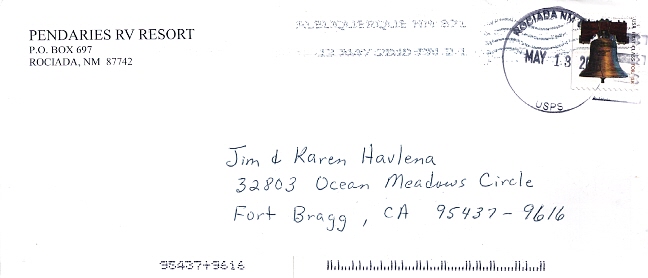 PENDARIES RV RESORT
P.O. BOX 697
ROCIADA, NM 87742
ALBUQUERQUE NM 871
13 MAY
ROCIADA NM
MAY 13
USPS
Jim & Karen Havlena
32803 Ocean Meadows Circle
Fort Bragg, CA 95437-9616
95437+9616